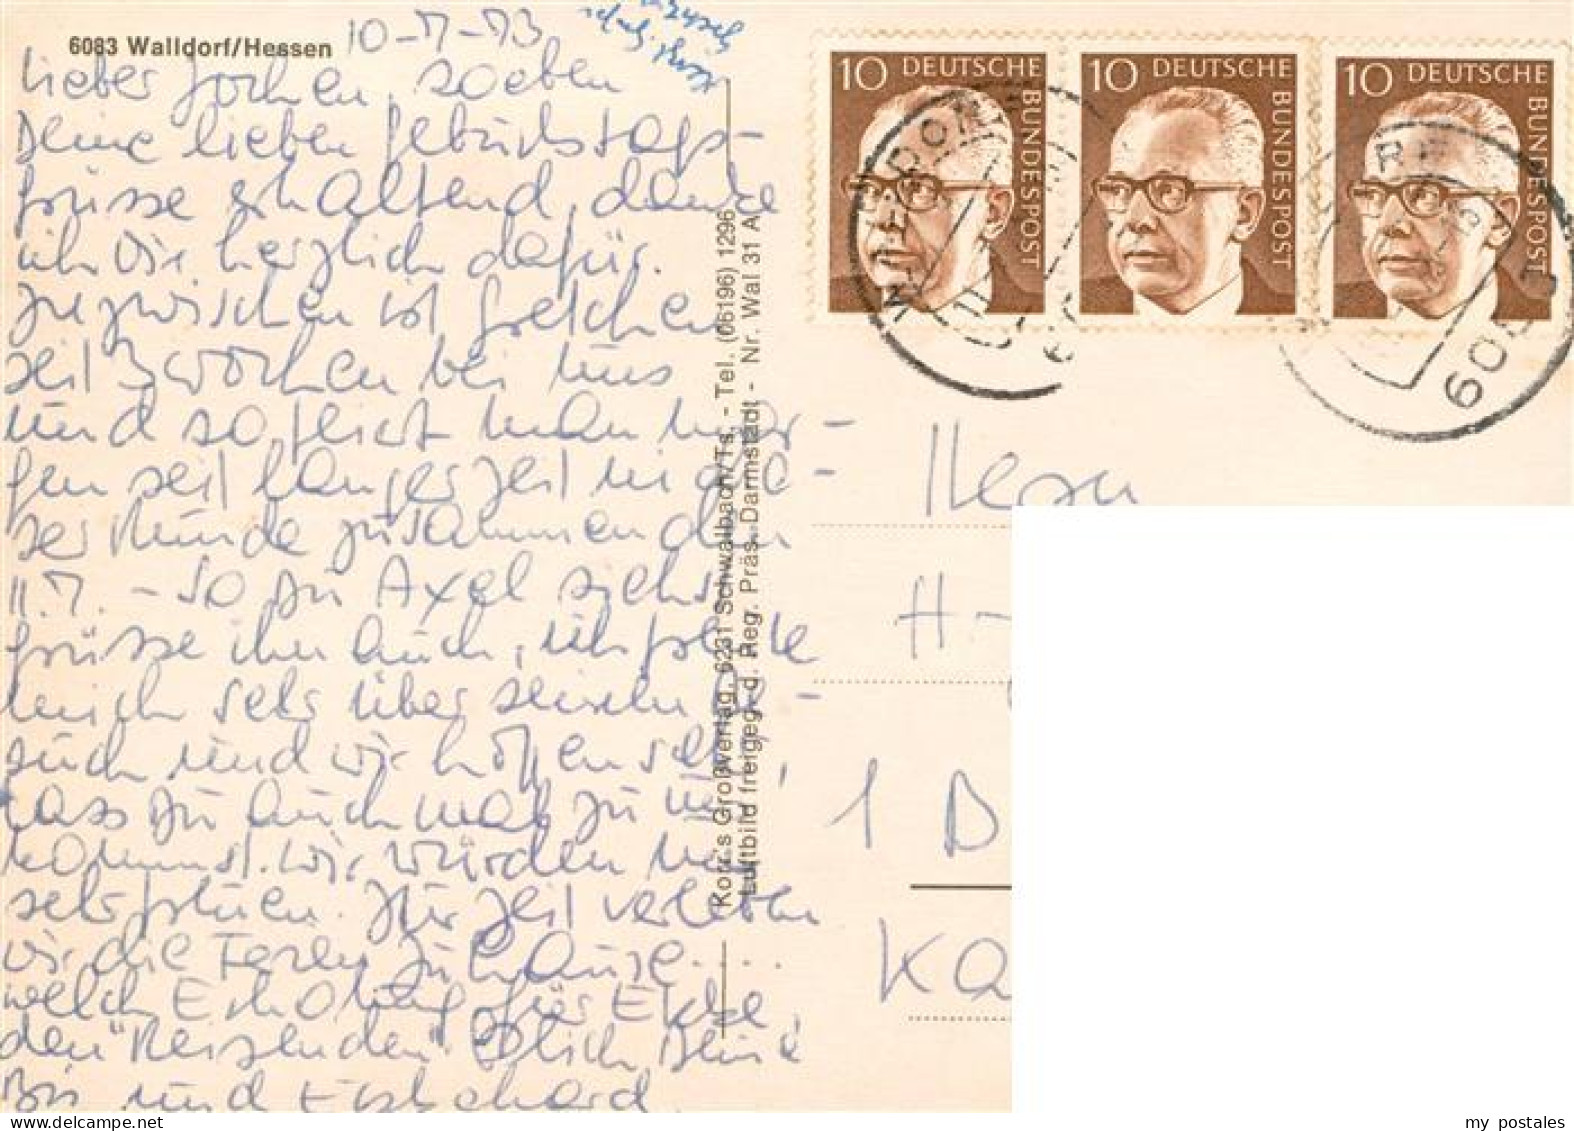 6083 Walldorf/Hessen
10-7-73
Lieber Jochen, soeben
Deine lieben Geburtstags-
grüsse erhaltend, danke
ich Dir herzlich dafür.
Inzwischen ist Gretchen
seit 3 Wochen bei uns
und so feiert man mor-
gen seit langer Zeit in die-
ser Runde zusammen den
11.7. - So Du Axel siehst
grüsse ihn auch, ich freute
mich sehr über seinen Be-
such und wir hoffen sehr,
dass Du auch mal zu uns
kommst. Wir würden uns
sehr freuen. Zur Zeit verleben
wir die Ferien zuhause....
welch Erholung für Ekke,
den "Reisenden". Herzlich Deine
und Ekkehard.
Korr's Großverlag, 6231 Schwalbach/Ts. - Tel. (06196) 1296
Luftbild freigeg. d. Reg. Präs. Darmstadt - Nr. Wal 31 A
10 DEUTSCHE BUNDESPOST
10 DEUTSCHE BUNDESPOST
10 DEUTSCHE BUNDESPOST
Herrn
H-
1 B
Ka
my postales